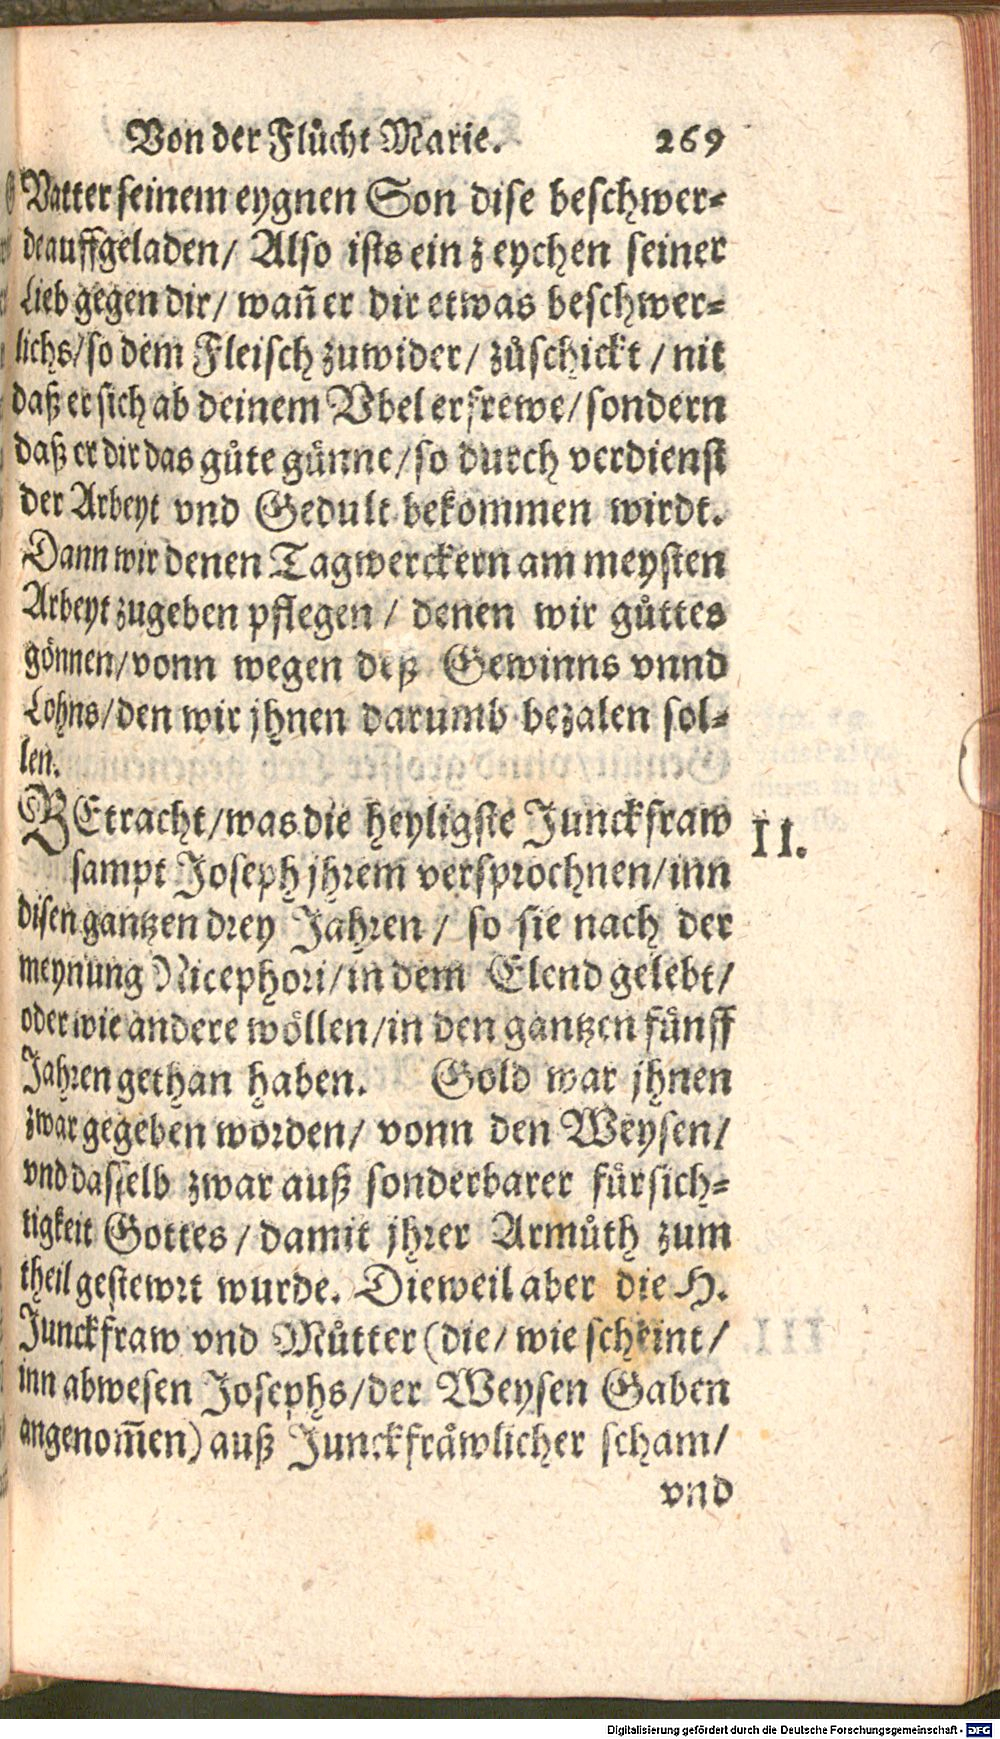 Von der Flůcht Marie. 269
Vatter seinem eygnen Son dise beschwer⸗
de auffgeladen/ Also ists ein zeychen seiner
Lieb gegen dir/ wañ er dir etwas beschwer⸗
lichs/ so dem Fleisch zuwider/ zůschickt/ nit
daß er sich ab deinem Vbel erfrewe/ sondern
daß er dir das gůte günne/ so durch verdienst
der Arbeyt vnd Gedult bekommen wirdt.
Dann wir denen Tagwerckern am meysten
Arbeyt zugeben pflegen/ denen wir gůttes
gönnen/ vonn wegen deß Gewinns vnnd
Lohns/ den wir jhnen darumb bezalen sol⸗
len.
BEtracht/ was die heyligste Junckfraw II.
sampt Joseph jhrem versprochnen/ inn
disen gantzen drey Jahren/ so sie nach der
meynung Nicephori/ in dem Elend gelebt/
oder wie andere wöllen/ in den gantzen fünff
Jahren gethan haben. Gold war jhnen
zwar gegeben worden/ vonn den Weysen/
vnd dasselb zwar auß sonderbarer fürsich⸗
tigkeit Gottes/ damit jhrer Armůth zum
theil gestewrt wurde. Dieweil aber die H.
Junckfraw vnd Můtter (die/ wie scheint/
inn abwesen Josephs/ der Weysen Gaben
angenom̃en) auß Junckfråwlicher scham/
vnd
Digitalisierung gefördert durch die Deutsche Forschungsgemeinschaft - DFG